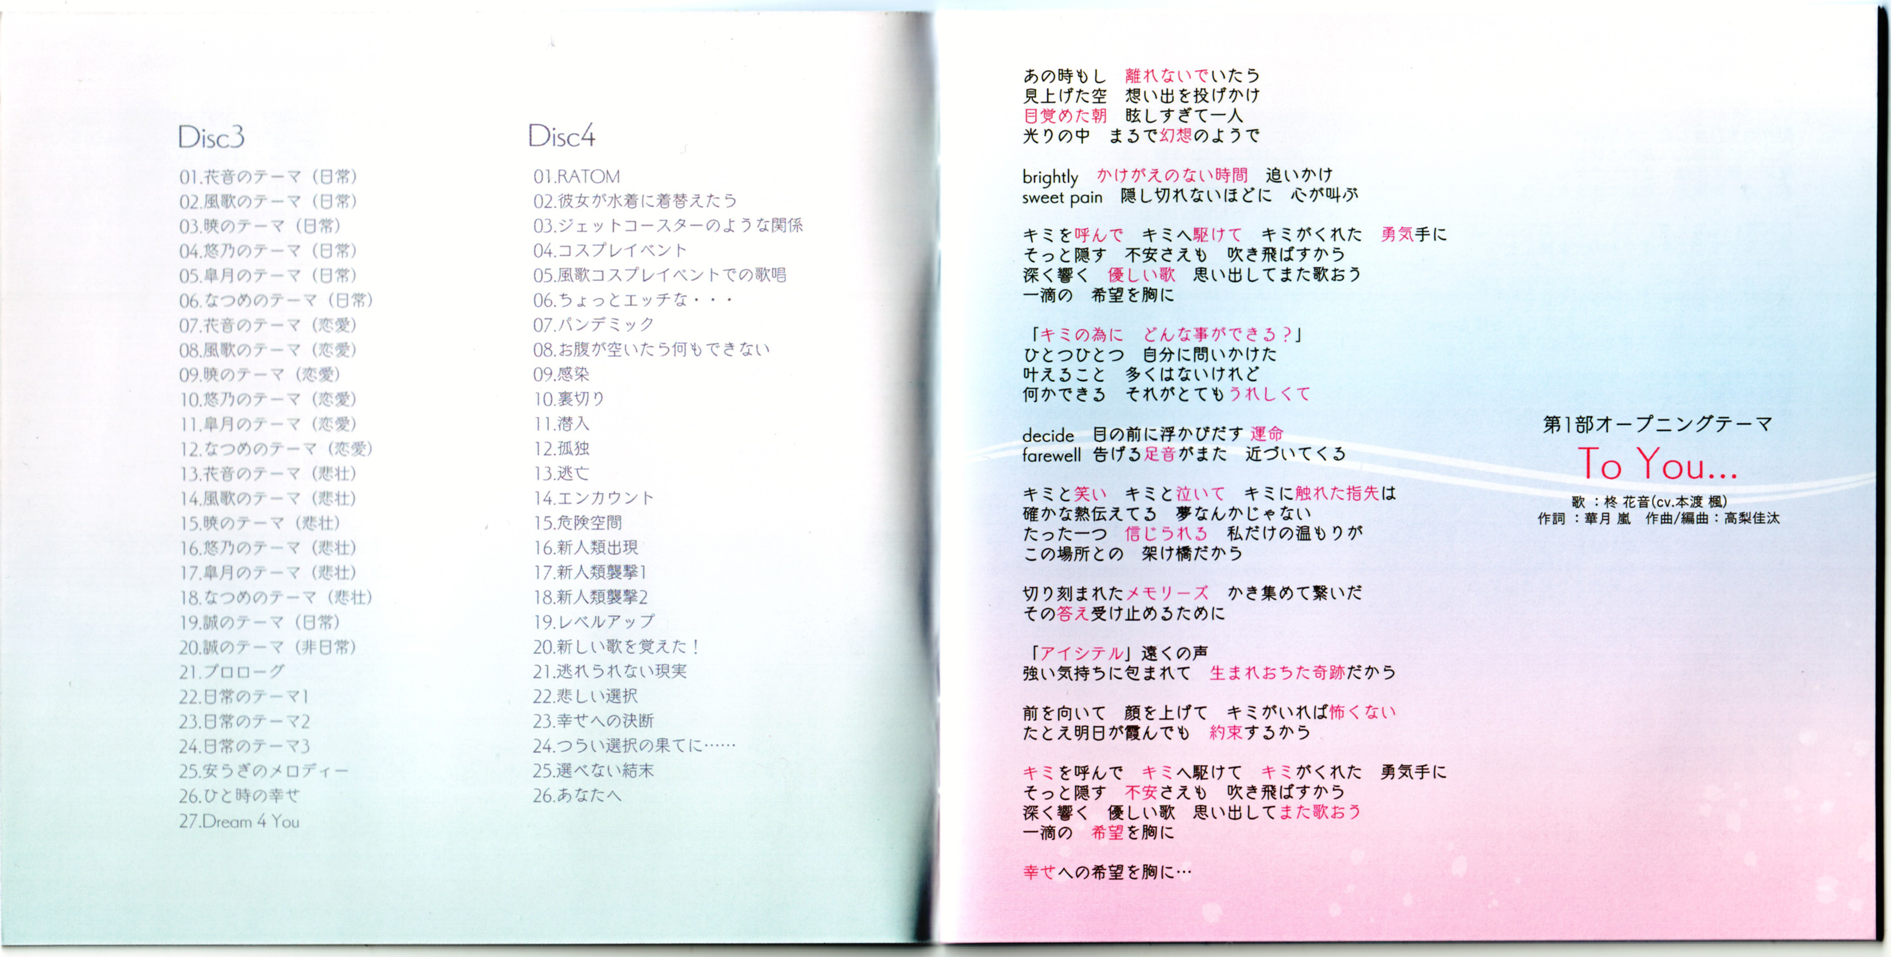 Disc3
01.花音のテーマ（日常）
02.風歌のテーマ（日常）
03.暁のテーマ（日常）
04.悠乃のテーマ（日常）
05.皐月のテーマ（日常）
06.なつめのテーマ（日常）
07.花音のテーマ（恋愛）
08.風歌のテーマ（恋愛）
09.暁のテーマ（恋愛）
10.悠乃のテーマ（恋愛）
11.皐月のテーマ（恋愛）
12.なつめのテーマ（恋愛）
13.花音のテーマ（悲壮）
14.風歌のテーマ（悲壮）
15.暁のテーマ（悲壮）
16.悠乃のテーマ（悲壮）
17.皐月のテーマ（悲壮）
18.なつめのテーマ（悲壮）
19.誠のテーマ（日常）
20.誠のテーマ（非日常）
21.プロローグ
22.日常のテーマ1
23.日常のテーマ2
24.日常のテーマ3
25.安うぎのメロディー
26.ひと時の幸せ
27.Dream 4 You
Disc4
01.RATOM
02.彼女が水着に着替えたら
03.ジェットコースターのような関係
04.コスプレイベント
05.風歌コスプレイベントでの歌唱
06.ちょっとエッチな・・・
07.パンデミック
08.お腹が空いたら何もできない
09.感染
10.裏切り
11.潜入
12.孤独
13.逃亡
14.エンカウント
15.危険空間
16.新人類出現
17.新人類襲撃1
18.新人類襲撃2
19.レベルアップ
20.新しい歌を覚えた！
21.逃れられない現実
22.悲しい選択
23.幸せへの決断
24.つらい選択の果てに……
25.選べない結末
26.あなたへ
あの時もし　離れないでいたら
見上げた空　想い出を投げかけ
目覚めた朝　眩しすぎて一人
光りの中　まるで幻想のようで
brightly　かけがえのない時間　追いかけ
sweet pain　隠し切れないほどに　心が叫ぶ
キミを呼んで　キミへ駆けて　キミがくれた　勇気手に
そっと隠す　不安さえも　吹き飛ばすから
深く響く　優しい歌　思い出してまた歌おう
一滴の　希望を胸に
「キミの為に　どんな事ができる？」
ひとつひとつ　自分に問いかけた
叶えること　多くはないけれど
何かできる　それがとてもうれしくて
decide　目の前に浮かびだす 運命
farewell　告げる足音がまた　近づいてくる
キミと笑い　キミと泣いて　キミに触れた指先は
確かな熱伝えてる　夢なんかじゃない
たった一つ　信じられる　私だけの温もりが
この場所との　架け橋だから
切り刻まれたメモリーズ　かき集めて繋いだ
その答え受け止めるために
「アイシテル」遠くの声
強い気持ちに包まれて　生まれおちた奇跡だから
前を向いて　顔を上げて　キミがいれば怖くない
たとえ明日が霞んでも　約束するから
キミを呼んで　キミへ駆けて　キミがくれた　勇気手に
そっと隠す　不安さえも　吹き飛ばすから
深く響く　優しい歌　思い出してまた歌おう
一滴の　希望を胸に
幸せへの希望を胸に…
第1部オープニングテーマ
To You...
歌 ：柊 花音(cv.本渡 楓)
作詞 ：華月 嵐　作曲/編曲：高梨佳汰